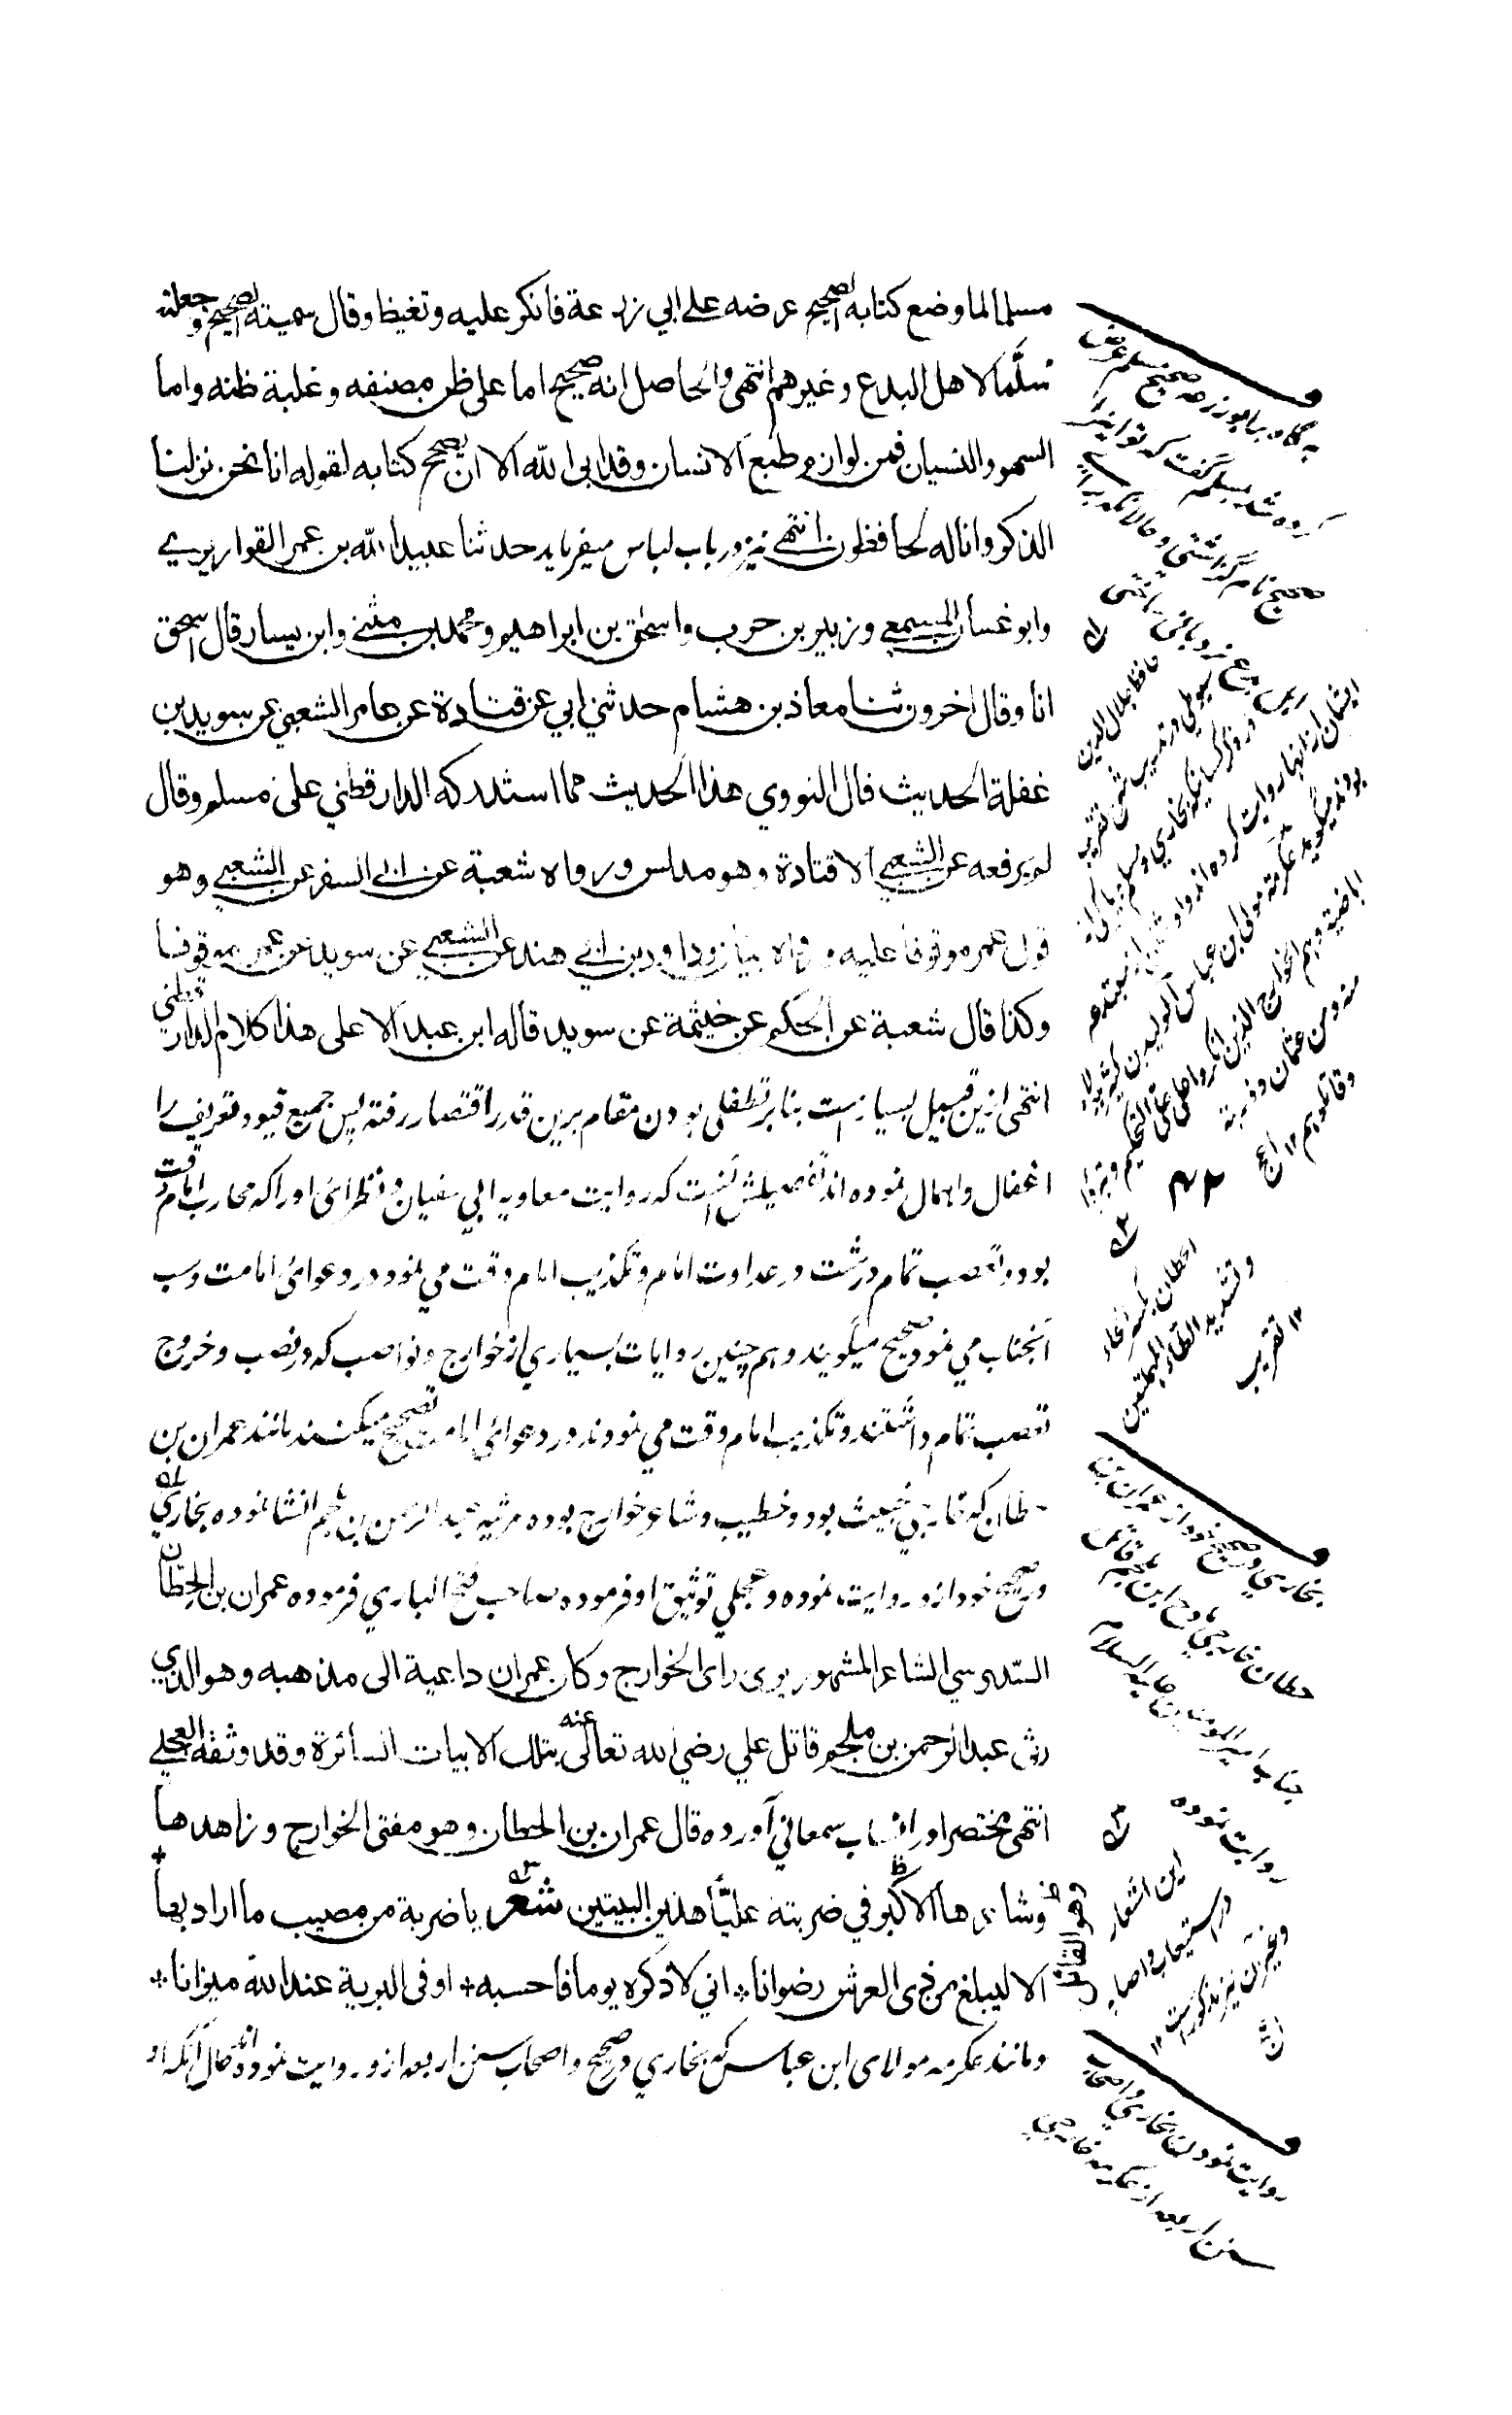 مسلما لما وضع كتابه الصحيح عرضه على ابي زرعة فانكر عليه وتغيظ وقال سميته الصحيح وجعلته
سلّما لاهل البدع وغيرهم انتهى والحاصل انه صحيح اما على ظن مصنفه وغلبة ظنه واما
السهو والنسيان فمن لوازم طبع الانسان وقد ابى الله الا ان يصح كتابه لقوله انا نحن نزلنا
الذكر وانا له لحافظون انتهى نيز در باب لباس ميفرمايد حدثنا عبيد الله بن عمر القواريري
وابو غسان المسمعي وزهير بن حرب واسحق بن ابراهيم ومحمد بن مثنى وابن يسار قال اسحق
انا وقال اخرون ثنا معاذ بن هشام حدثني ابي عن قتادة عن عامر الشعبي عن سويد بن
غفلة الحديث قال النووي هذا الحديث مما استدركه الدارقطني على مسلم وقال
لم يرفعه عن الشعبي الا قتادة وهو مدلس ورواه شعبة عن ابي السفر عن الشعبي وهو
قول عمر موقوفا عليه ورواه بيان وداود بن ابي هند عن الشعبي عن سويد عن عمر موقوفا
وكذا قال شعبة عن الحكم عن خيثمة عن سويد قاله ابن عبد الاعلى هذا كلام الدارقطني
انتهى ازين قبيل بسيار است بنابر تطفلي بودن مقام برين قدر اقتصار رفته پس جميع قيود تعريف را
اغفال واهمال نموده اند تفصيلش اينست كه روايت معاويه ابي سفيان ونظرائ اورا كه محارب امام وقت
بود وتعصب تمام داشت در عداوت امام وتكذيب امام وقت مي نمود در دعوائ امامت وسب
آنجناب مي نمود صحيح ميگويند وهم چنين روايات بسياري از خوارج ونواصب كه در نصب وخروج
تعصب تمام داشتند وتكذيب امام وقت مي نمودند در دعوائ امامت تصحيح ميكنند مانند عمران بن
حطان كه خارجي خبيث بود وخطيب وشاعر خوارج بوده مرثيه عبد الرحمن بن ملجم انشا نموده بخاري
در صحيح خود ازو روايت نموده وعجلي توثيق او فرموده صاحب فتح الباري فرموده عمران بن الحطان
السدوسي الشاعر المشهور يرى راى الخوارج وكان عمران داعية الى مذهبه وهو الذي
رثى عبد الرحمن بن ملجم قاتل علي رضي الله تعالى عنه بتلك الابيات السائرة وقد وثقه العجلي
انتهى مختصرا ودر انساب سمعاني آورده قال عمران بن الحطان وهو مفتى الخوارج وزاهدها
وشاعرها الاكبر في ضربته عليّا هذين البيتين شعر يا ضربة من مصيب ما اراد بها
الا ليبلغ من ذى العرش رضوانا * اني لاذكره يوما فاحسبه * اوفى البرية عند الله ميزانا *
ومانند عكرمه مولاى ابن عباس كه بخاري در صحيح واصحاب سنن اربعه ازو روايت نموده اند حال آنكه او
كرده شد بمسلم گفت كه تو اينرا
صحيح نام گذاشتي وحالانكه براي
حافظ جلال الدين
ايشان از آنها روايت كرده اند
حطان بكسر الحاء
وتشديد الطاء المهملتين
١٢ تقريب
بخاري در صحيح خود از عمران بن
حطان خارجي مادح ابن ملجم قاتل
جناب امير المومنين عليه السلام
روايت نموده
اين اشعار
در استيعاب واصابه
وغير آن نيز مذكور است ١٢
وهو القائل
روايت نمودن بخاري واصحاب
سنن اربعه از عكرمه خارجي